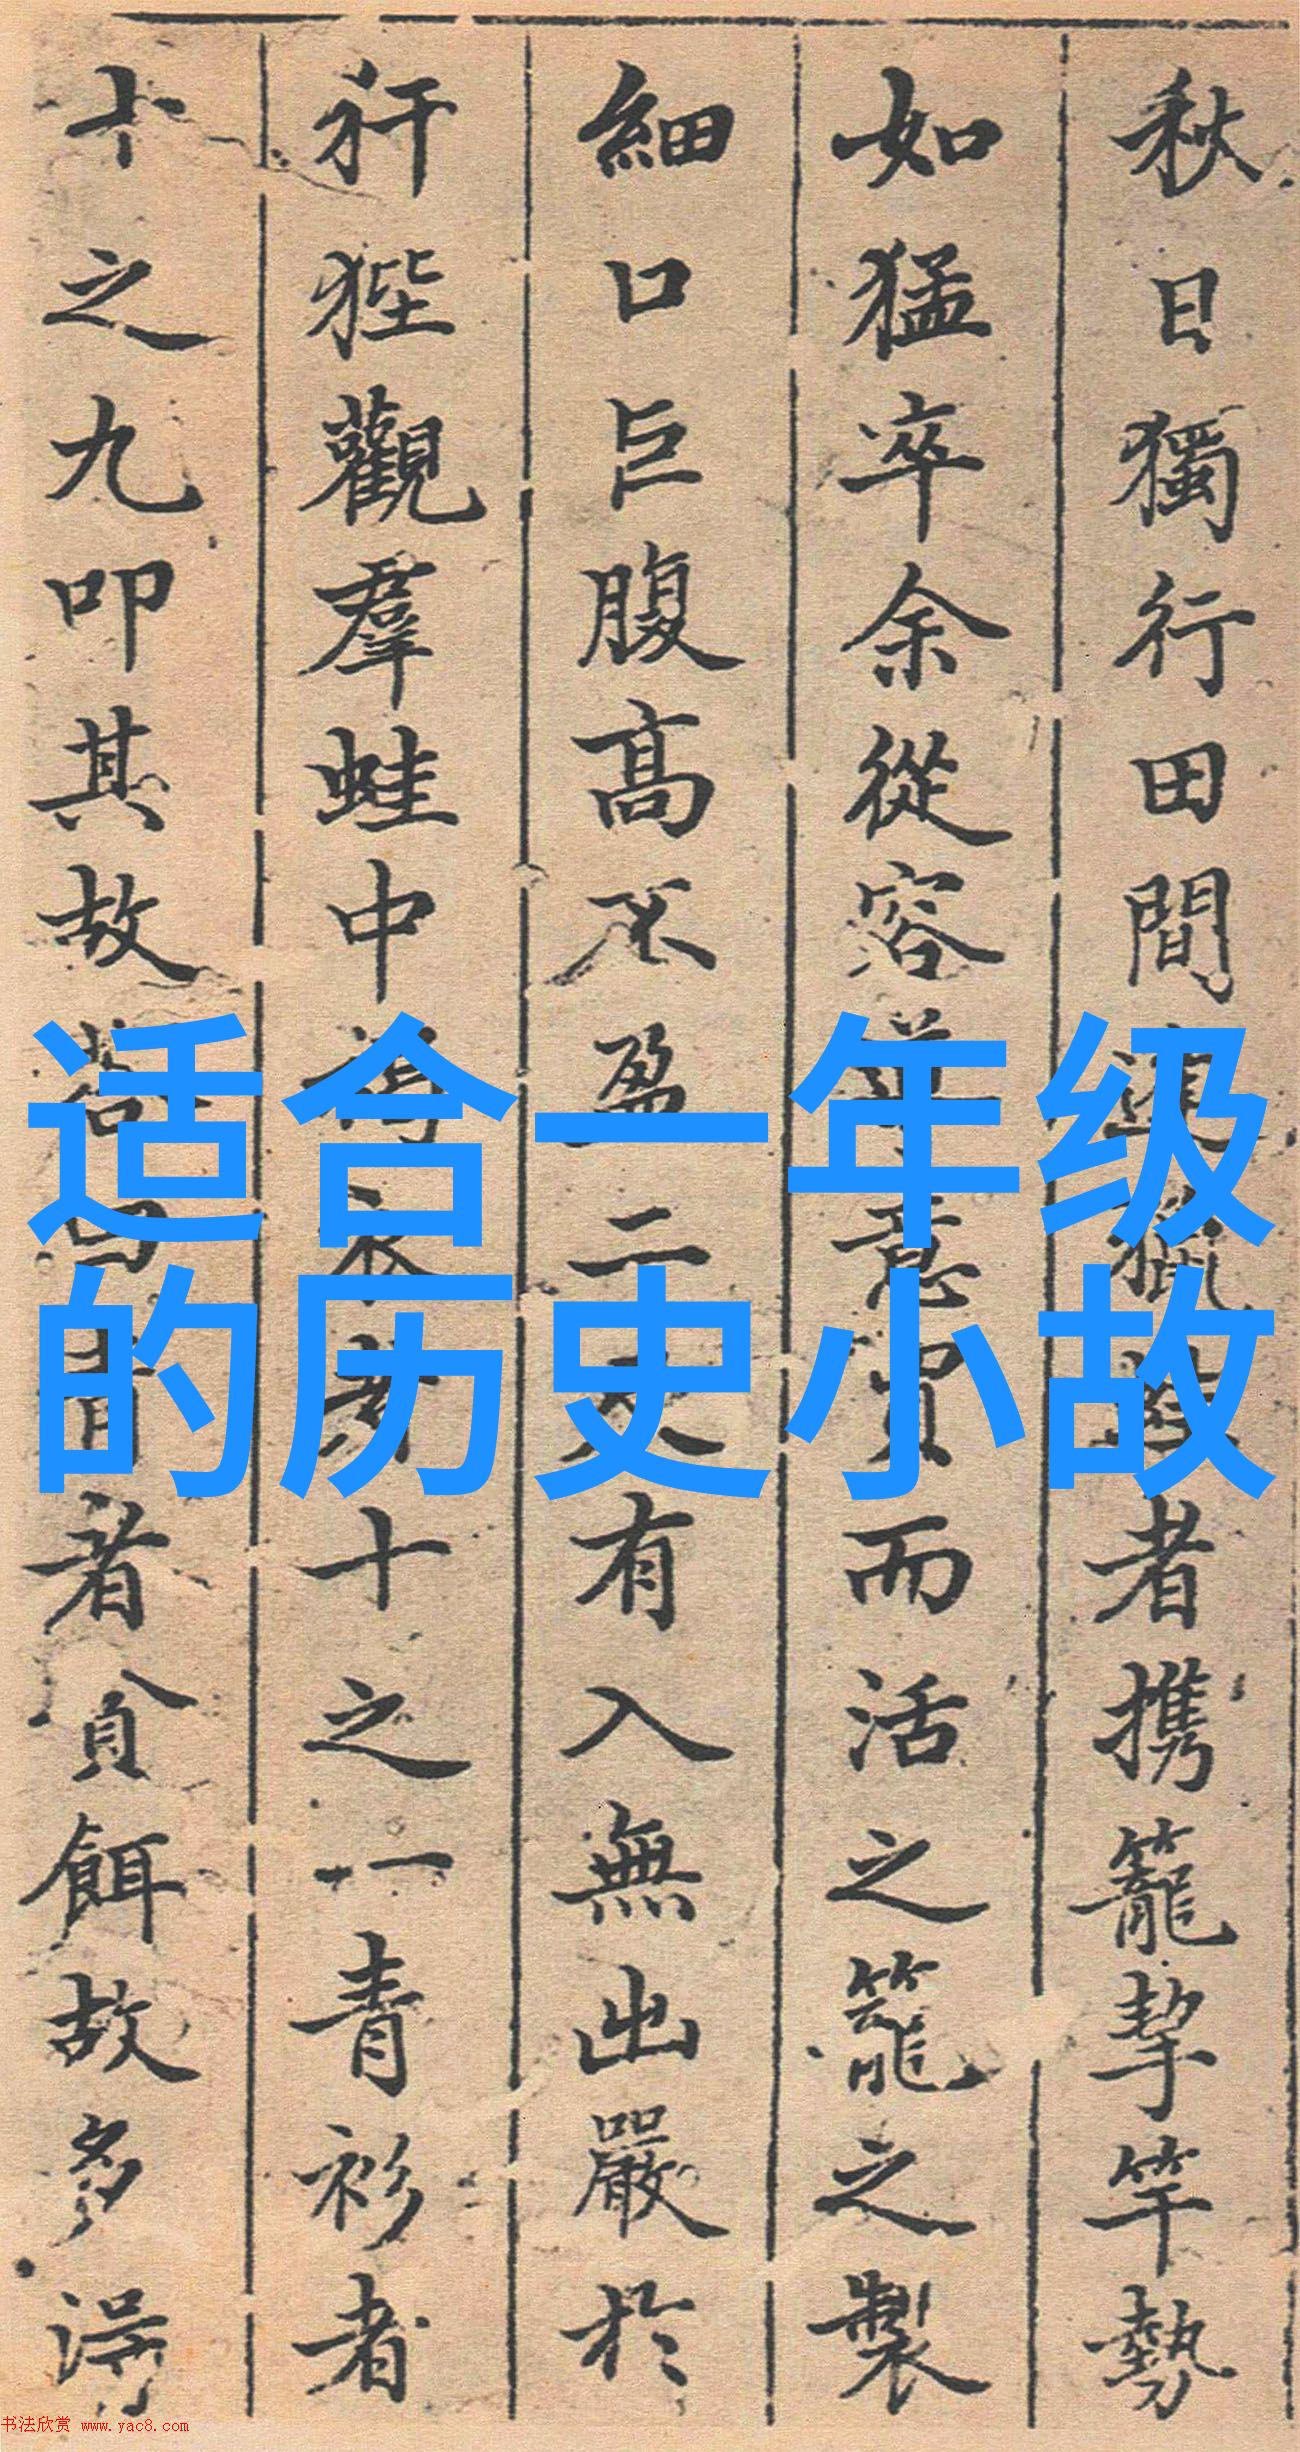 秋日獨行田間
者携籠挈竿勢
如猛卒余從容
意
而活之籠之製
細口巨腹高不盈二
有入無出嚴於
犴狴觀群蛙中
十之一青衫者
十之九叩其故
者貪餌故多得
适合一年级
的历史小故
书法欣赏 www.yac8.com